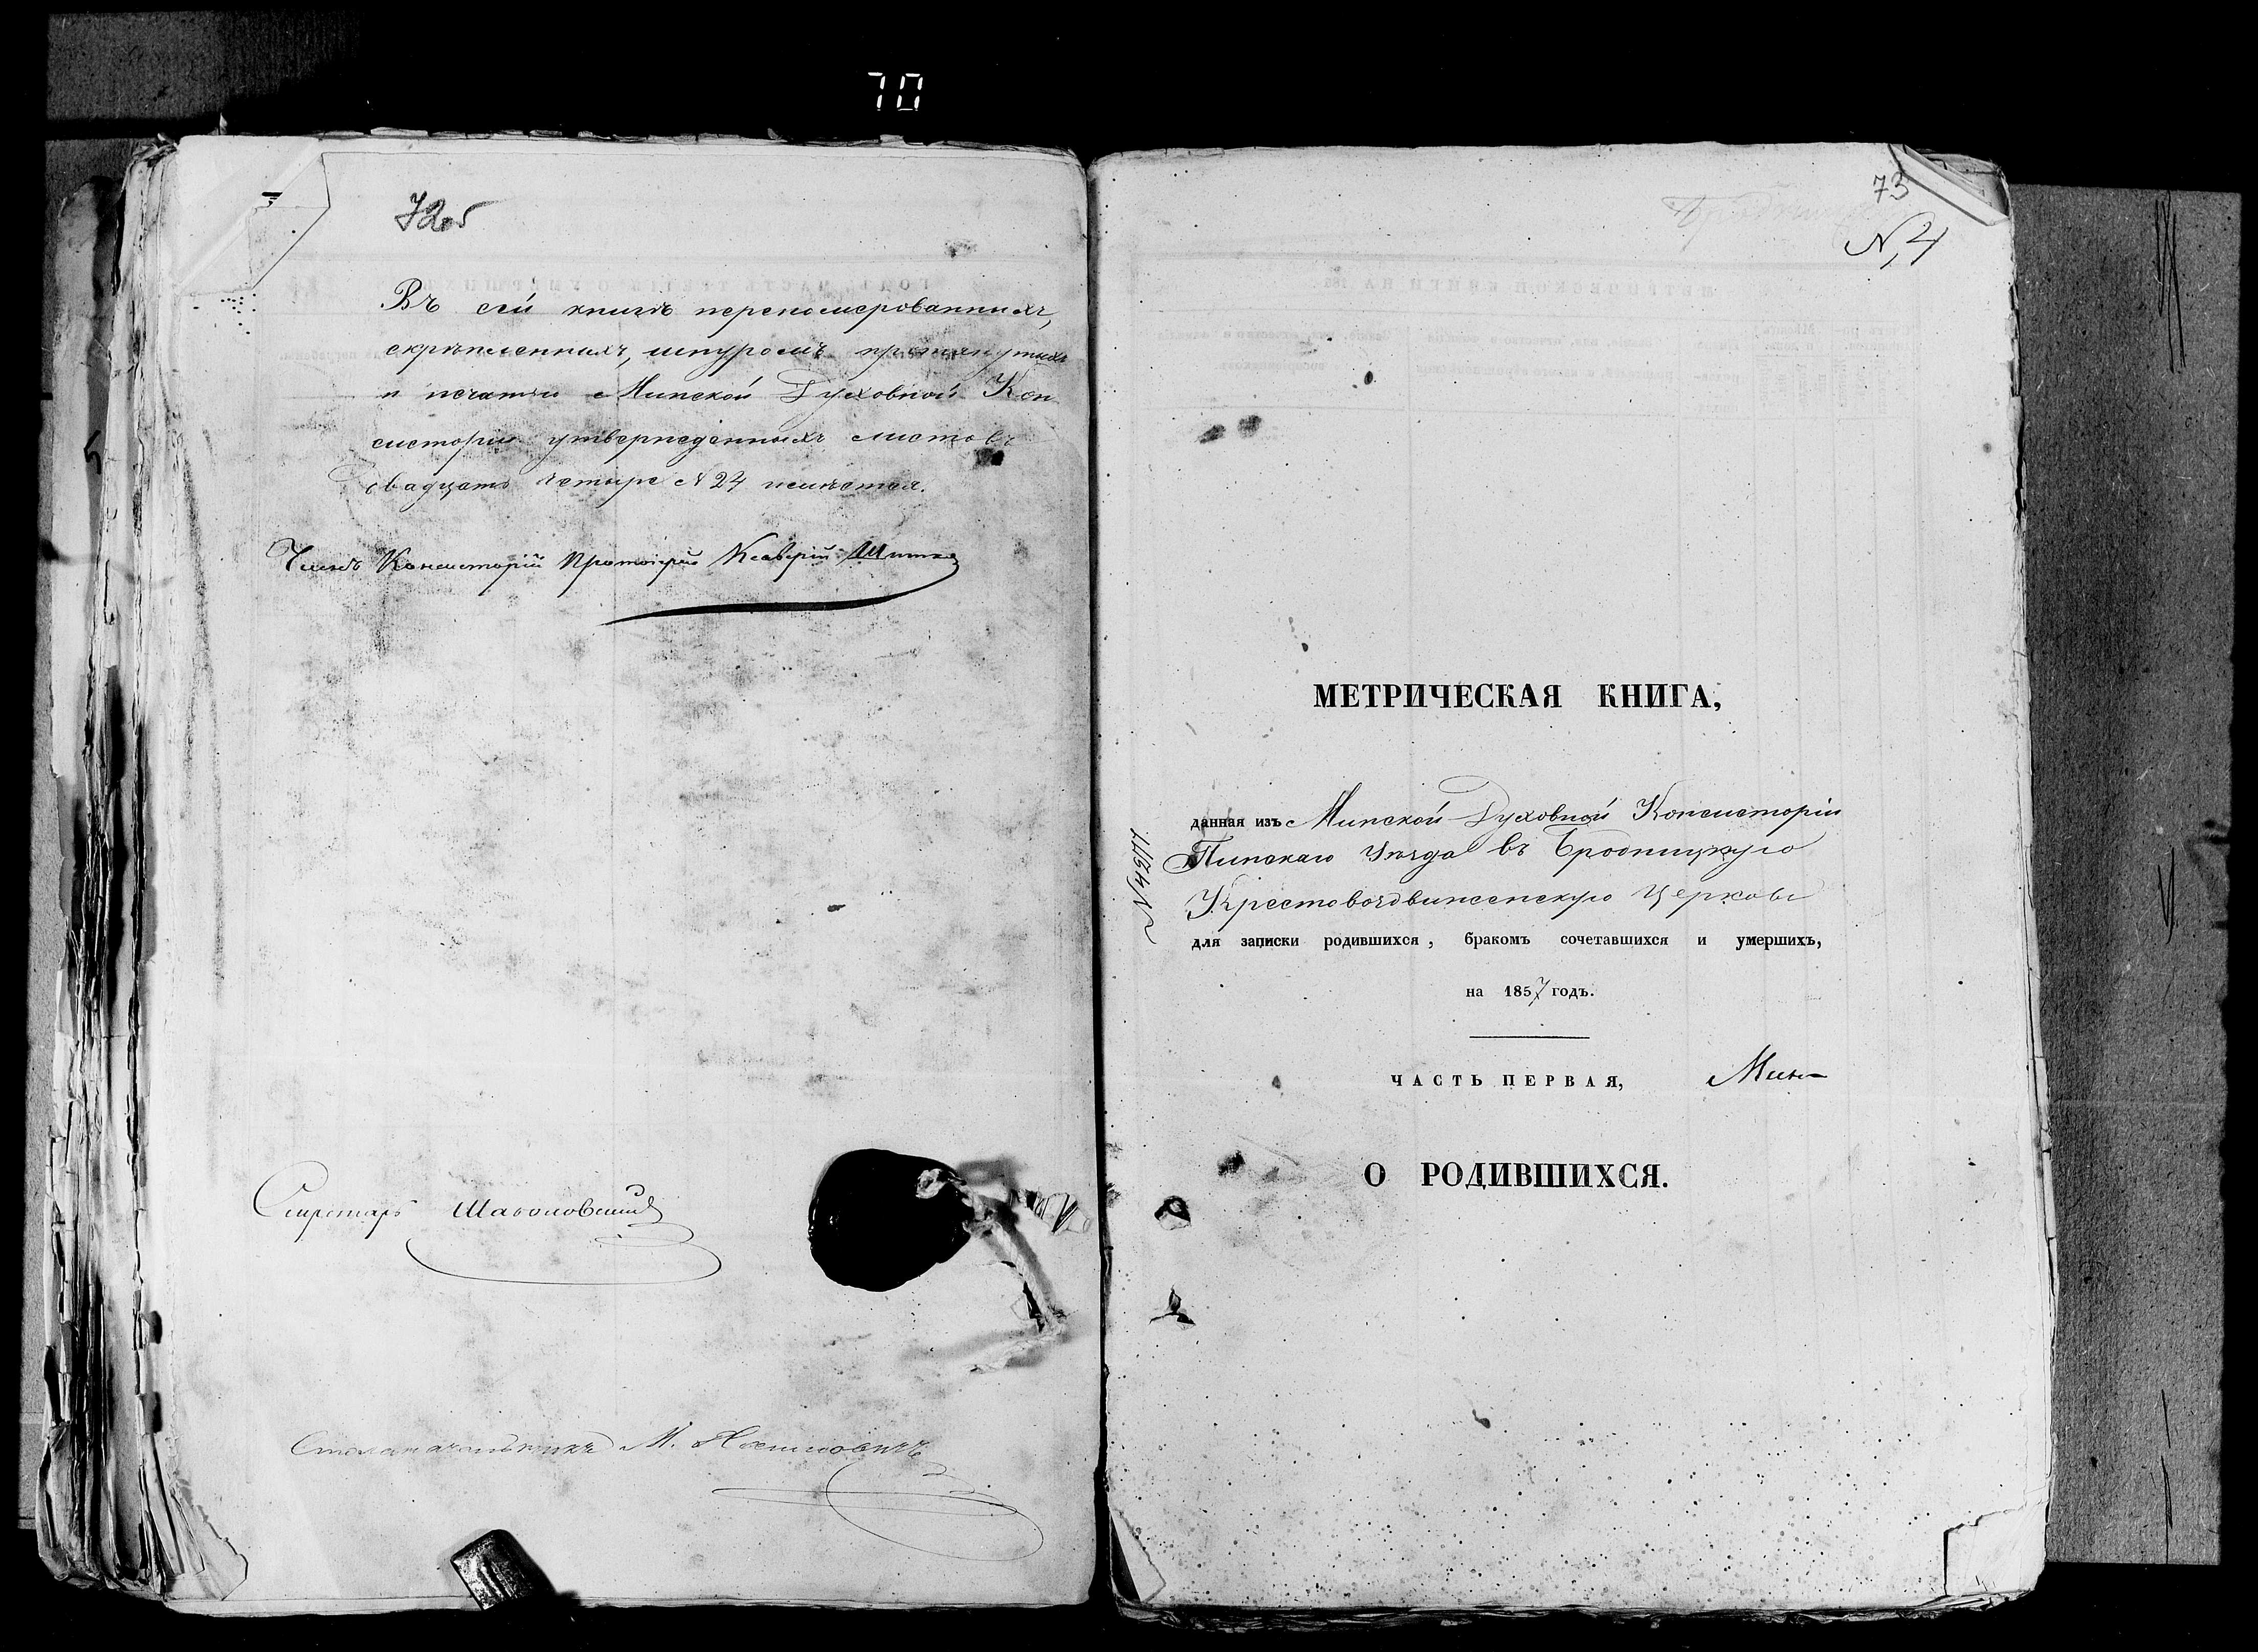 70
72об
Въ сей книгѣ переномерованныхъ,
скрѣпленныхъ, шнуромъ протянутыхъ
и печатью Минской Духовной Кон
систоріи утвержденныхъ листовъ
двадцать четыре № 24 имѣется.
Членъ Консисторіи Протоіерей Ксаверій
Секретарь
Столоначальникъ М.
73
№ 4
МЕТРИЧЕСКАЯ КНИГА,
данная изъ Минской Духовной Консисторіи
Пинскаго Уѣзда въ Бродницкую
Крестовоздвиженскую Церковь
для записки родившихся, бракомъ сочетавшихся и умершихъ,
на 1857 годъ.
ЧАСТЬ ПЕРВАЯ,
О РОДИВШИХСЯ.